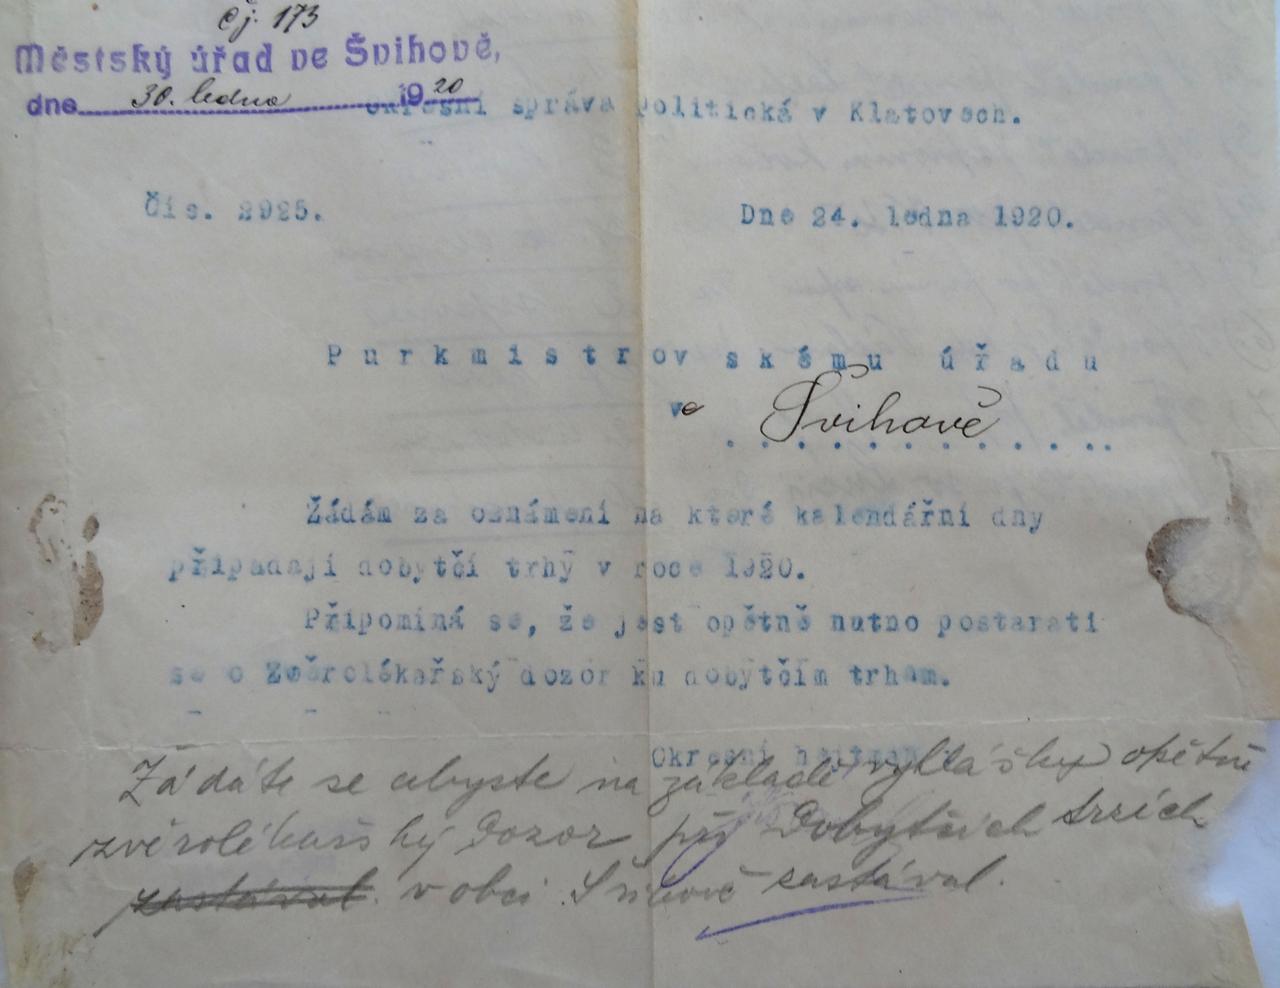 čj. 173
Městský úřad ve Švihově,
dne 30. ledna 1920
Okresní správa politická v Klatovech.
Čís. 2925.
Dne 24. ledna 1920.
Purkmistrovskému úřadu
ve Švihově
Žádám za oznámení na které kalendářní dny
připadají dobytčí trhy v roce 1920.
Připomíná se, že jest opětně nutno postarati
se o Zvěrolékařský dozor ku dobytčím trhům.
Okresní hejtman
Žádáte se abyste na základě vyhlášky opětně
zvěrolékařský dozor při Dobytčích trzích
zastával v obci Švihově zastával.